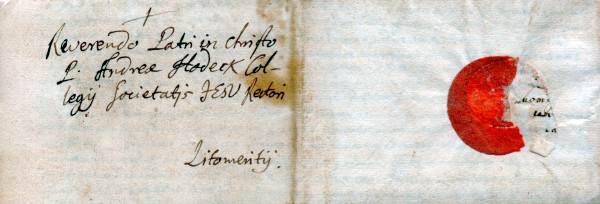 Reverendo Patri in Christo
P. Andreæ Hodeck Col-
legij Societatis JESU Rectori
Litomeritij.